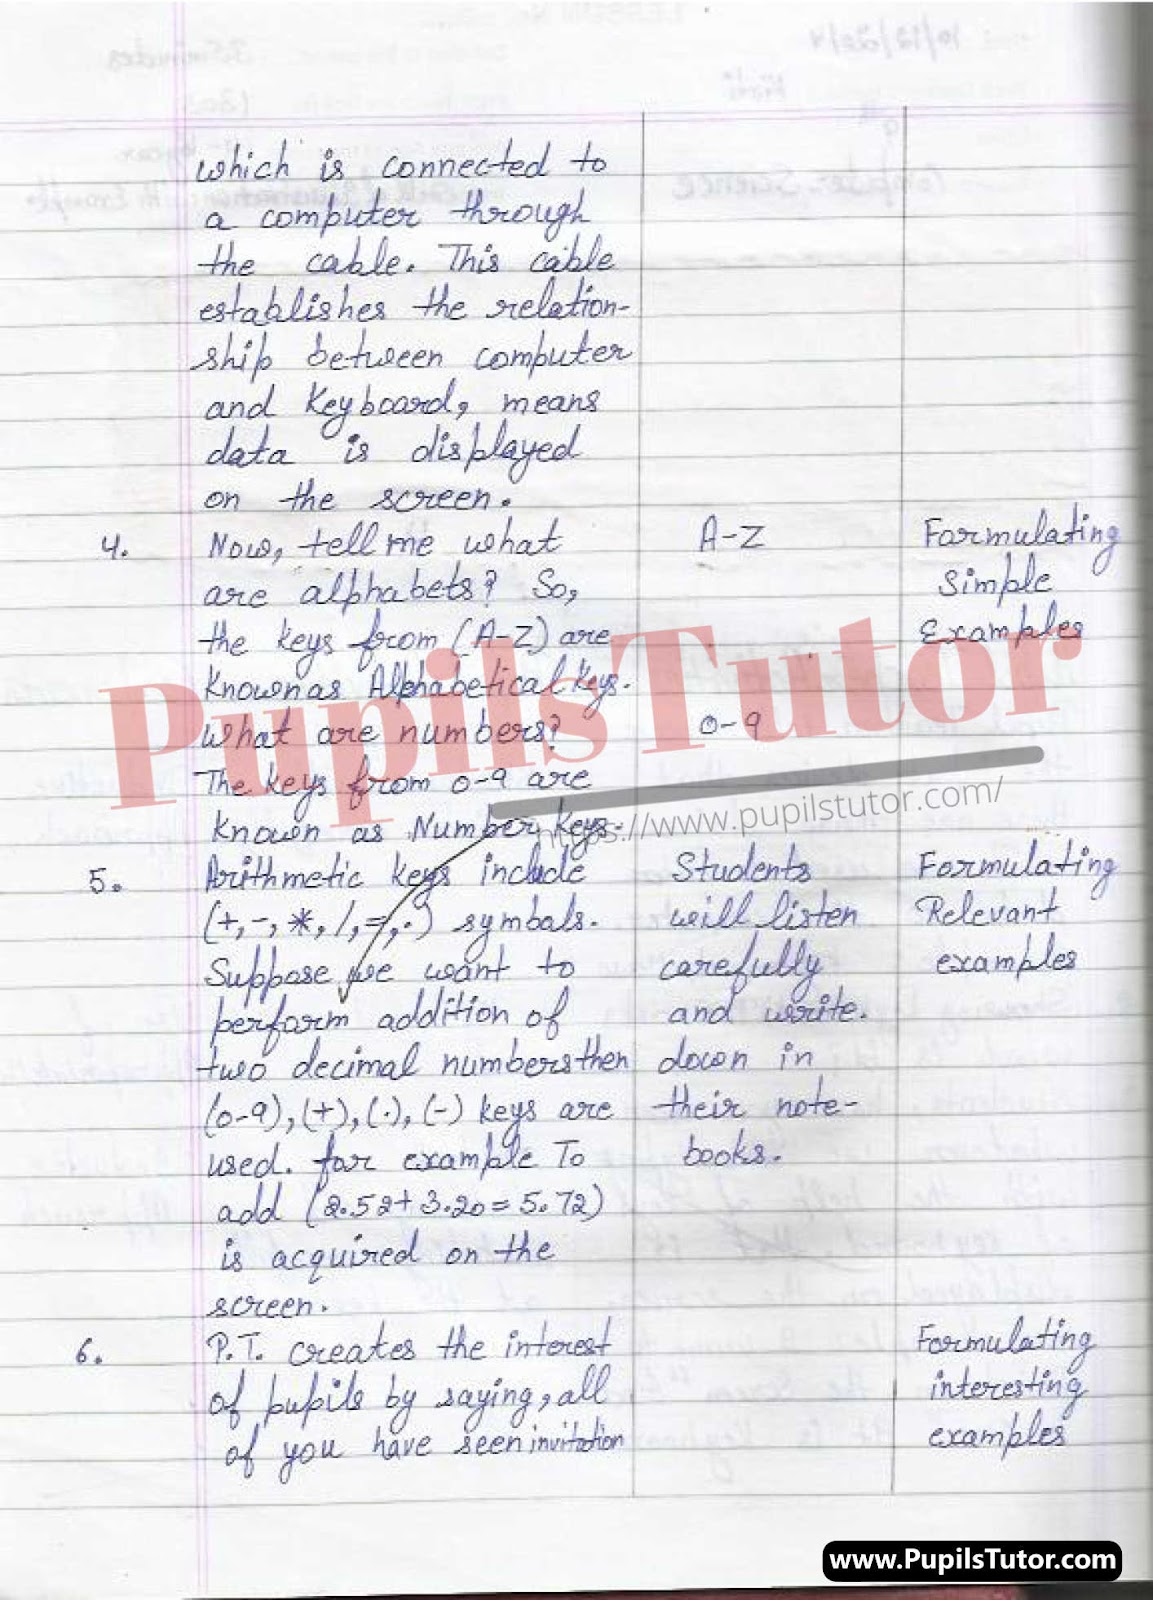 which is connected to
a computer through
the cable. This cable
establishes the relation-
ship between computer
and Keyboard, means
data is displayed
on the screen.
4. Now, tell me what
are alphabets? So,
the keys from (A-Z) are
Known as Alphabetical Keys.
What are numbers?
The keys from 0-9 are
known as Number keys.
A-Z
0-9
Formulating
Simple
Examples
5. Arithmetic keys include
(+, -, *, /, =, .) symbols.
Suppose we want to
perform addition of
two decimal numbers then
(0-9), (+), (.), (-) keys are
used. for example To
add (2.52 + 3.20 = 5.72)
is acquired on the
screen.
Students
will listen
carefully
and write.
down in
their note-
books.
Formulating
Relevant
examples
6. P.T. creates the interest
of pupils by saying, all
of you have seen invitation
Formulating
interesting
examples
PupilsTutor
https://www.pupilstutor.com/
www.PupilsTutor.com